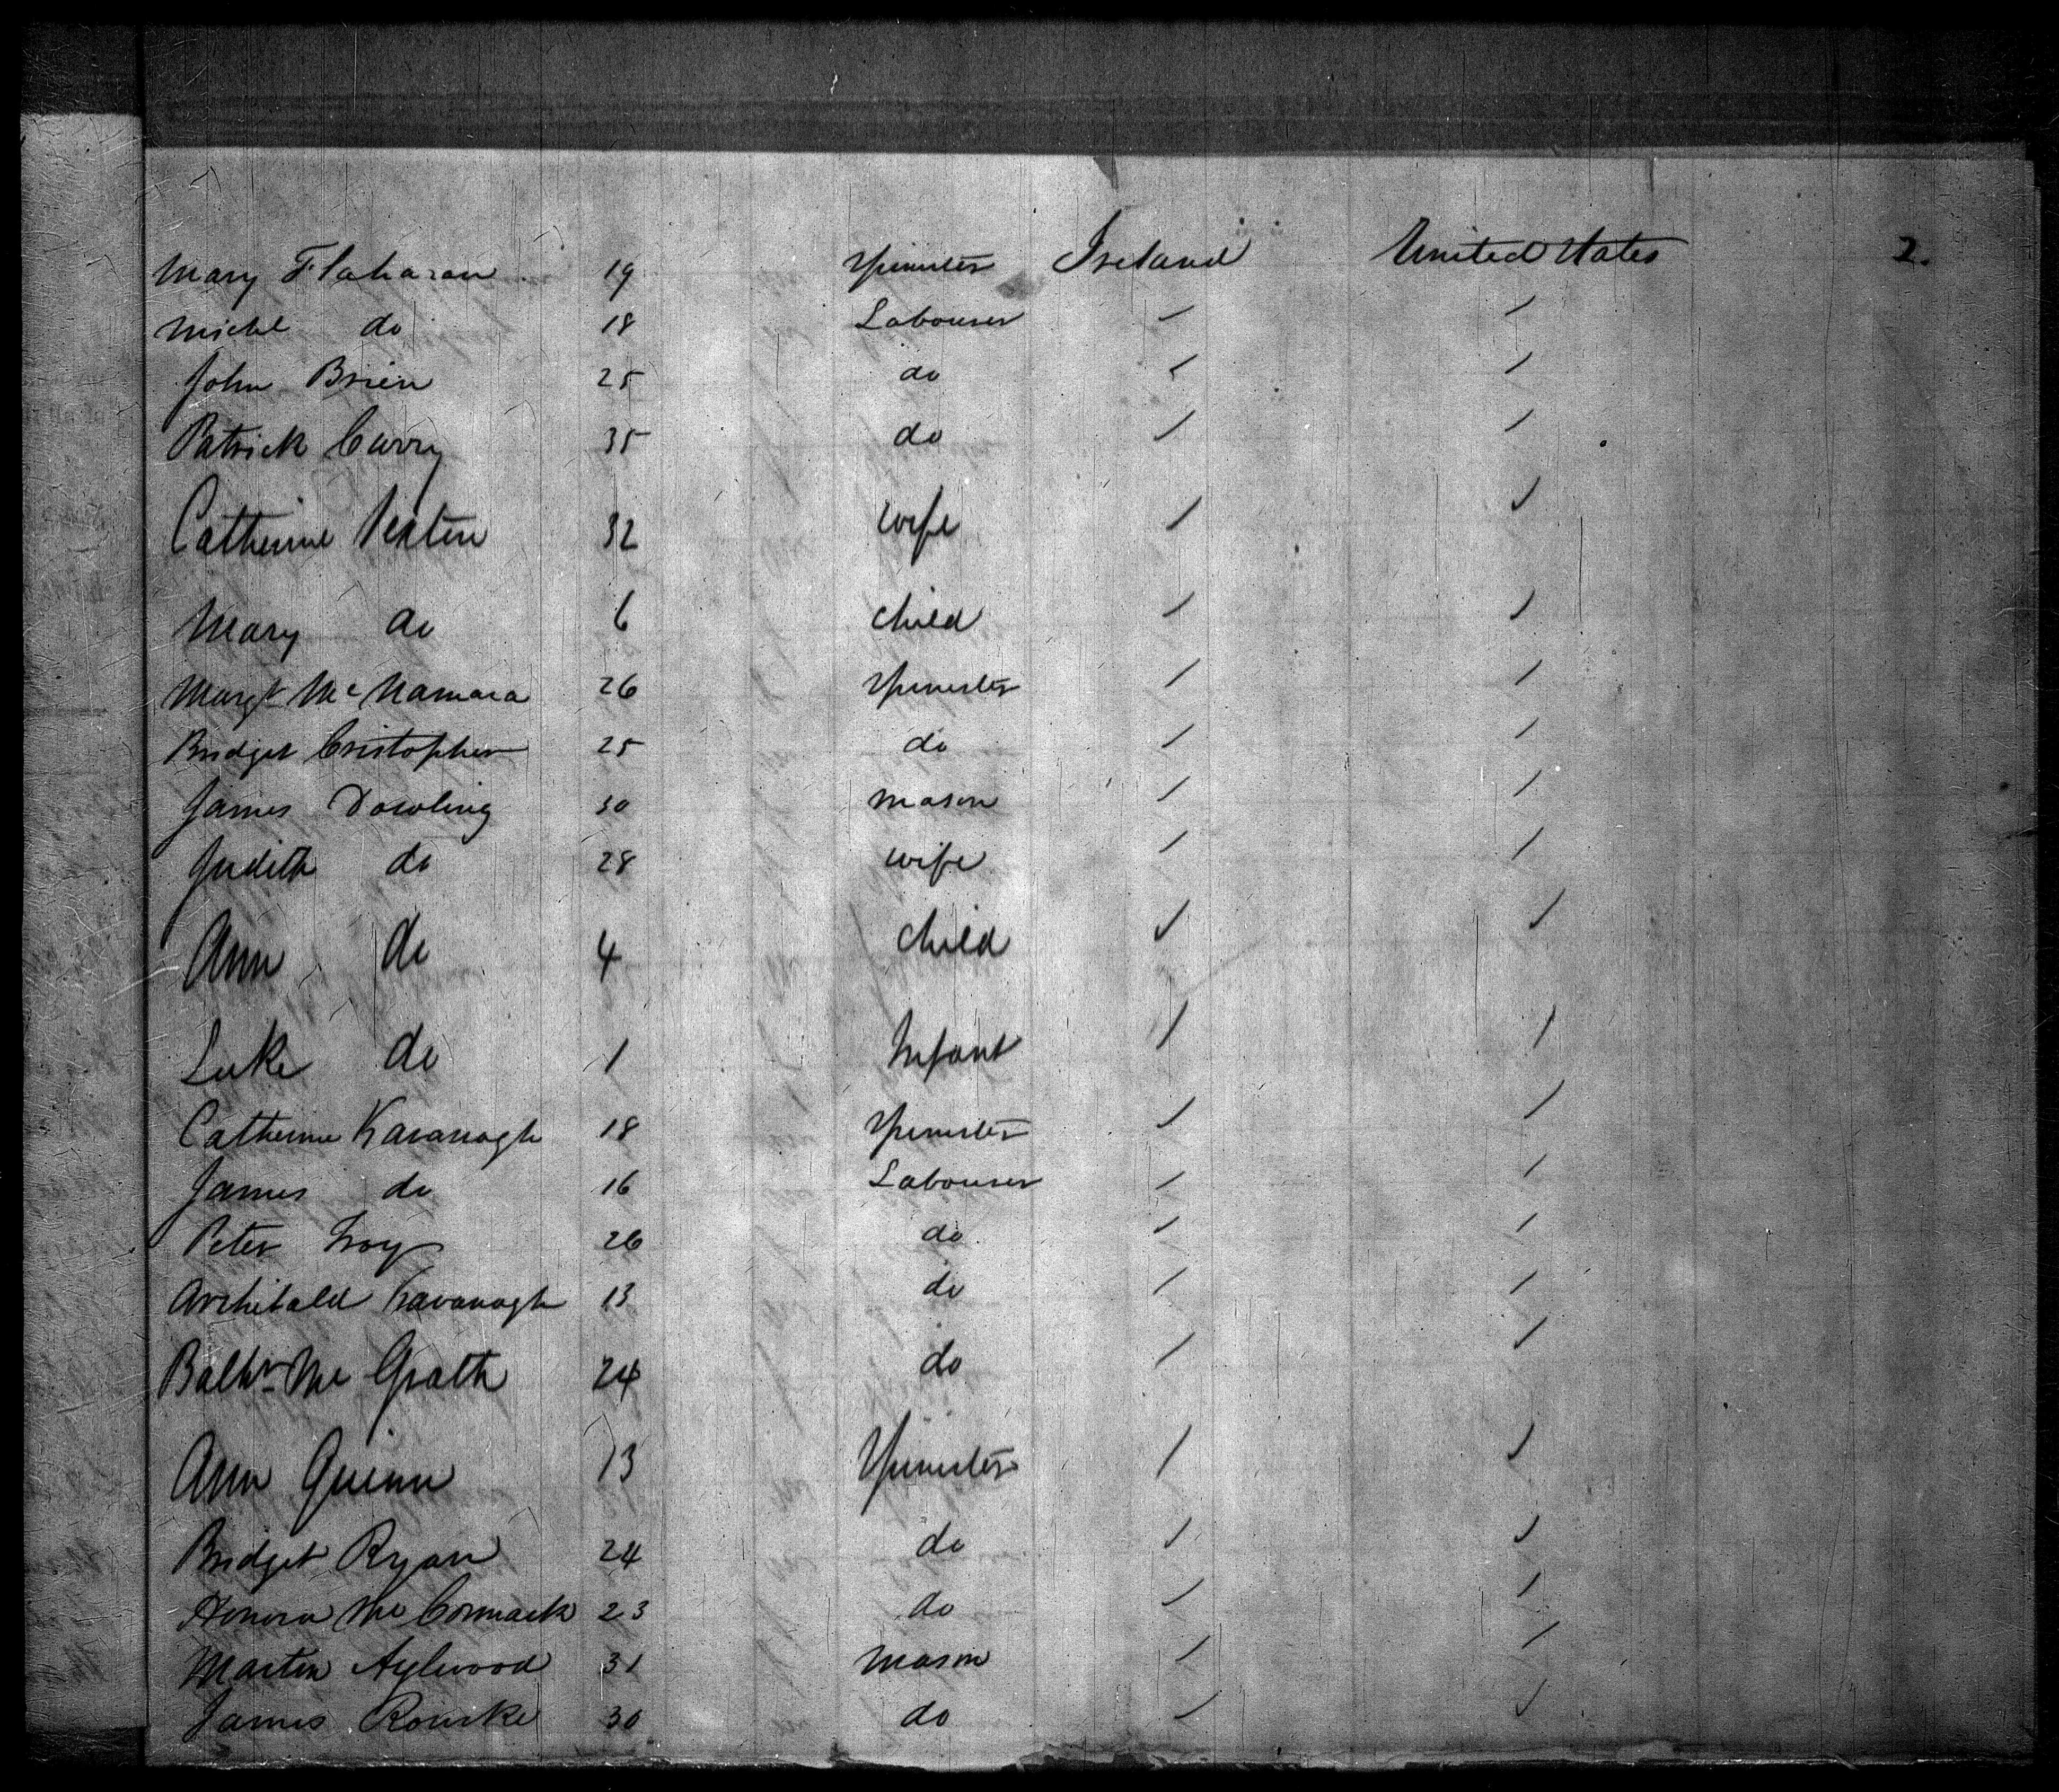 Mary Flaharan 19 Spinster Ireland United States 2.
Michl do 18 Labourer
John Brien 25 do
Patrick Curry 35 do
Catherine Sexton 32 wife
Mary do 6 child
Margt McNamara 26 Spinster
Bridget Cristopher 25 do
James Dowling 30 mason
Judith do 28 wife
Ann do 4 child
Luke do 1 Infant
Catherine Kavanagh 18 Spinster
James do 16 Labourer
Peter Troy 26 do
Archibald Kavanagh 13 do
McGrath 24 do
Ann Quinn 13 Spinster
Bridget Ryan 24 do
Honora McCormack 23 do
Martin Aylwood 31 mason
James Rourke 30 do